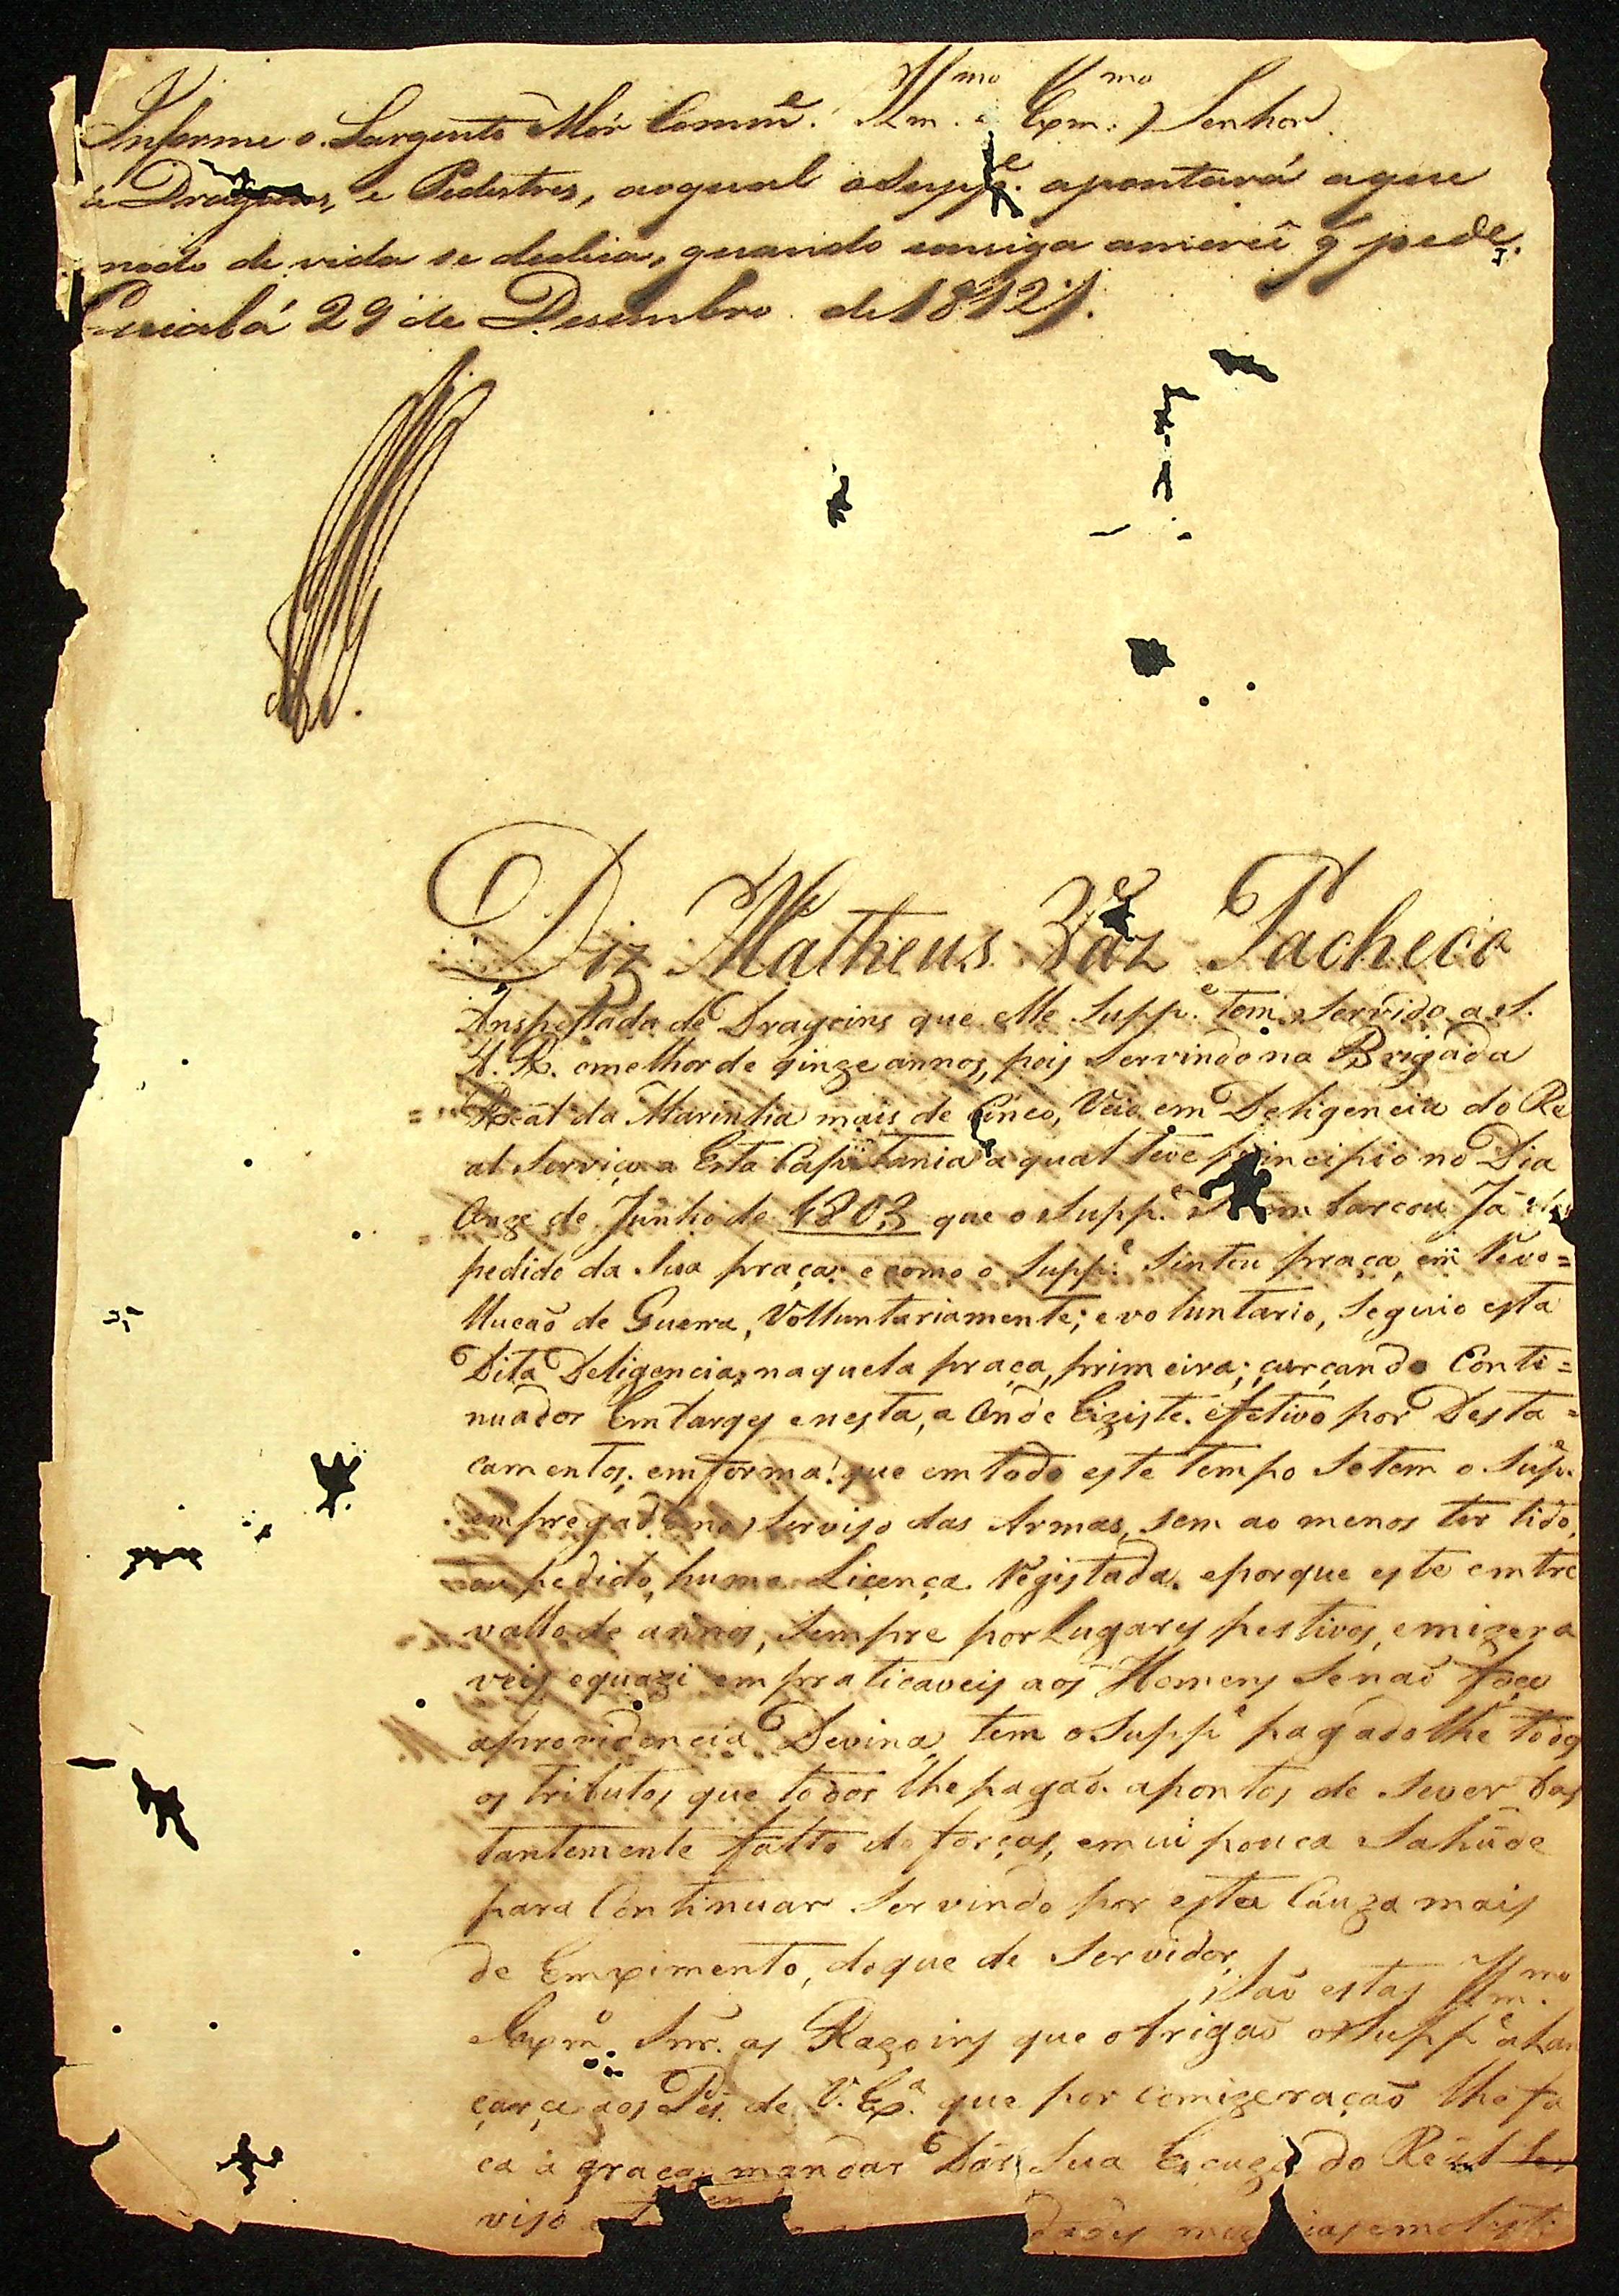 Illmo e Exmo Senhor.
Informe o Sargento Mór Comme.
de Dragoens, e Pedestres, aoqual o Suppe. apontará aque
modo de vida se dedica, quando consiga amercê q pede.
Cuiabá 29 de Desembro de 1812.
Diz Matheus Vaz Pacheco
Anspessada de Dragoins que elle Suppe. tem servido a S.
A. R. omelhor de qinze annos, pois Servindo na Brigada
Real da Marinha mais de Cinco, Veio em Deligencia do Re
al Serviço a Esta Capitania a qual teve principio no Dia
Onze de Junho de 1803 que o Suppe. Se embarcou Já des
pedido da Sua praça: e como o Suppe. Sintou praça, em Revo=
lluçaõ de Guerra, Volluntariamente; e voluntario, Seguio esta
Dita Deligencia, naquela praça, primeira; curçando Conti=
nuados Embarqes e nesta, a Onde Eiziste. efetivo por Desta=
camentos; em forma! que em todo este tempo Se tem o Supe.
empregado no Serviso das Armas, sem ao menos ter tido,
ou pedido, huma Licença Registada. eporque este emtre
vallo de annos, Sempre por Lugares pestivos, emizera
veis equazi empraticaveis aos Homens Se naõ foçe
aprovidencia Devina, tem o Suppe pagadolhe todos
os tributos que todos lhe pagaõ. apontos de Sever bas
tantemente falto de forças, emui pouca Sahude
para Continuar Servindo por esta Cauza mais
de Empimento, doque de Servidor,
Saõ estas Illmo.
Exmo. Snr. as Razoins que obrigaõ o Suppe alan
çarçe aos Pés. de V. Exa. que por comizeraçaõ lhe fa
ca a graça mandar Dár Sua Escuza do Real Ser
viso